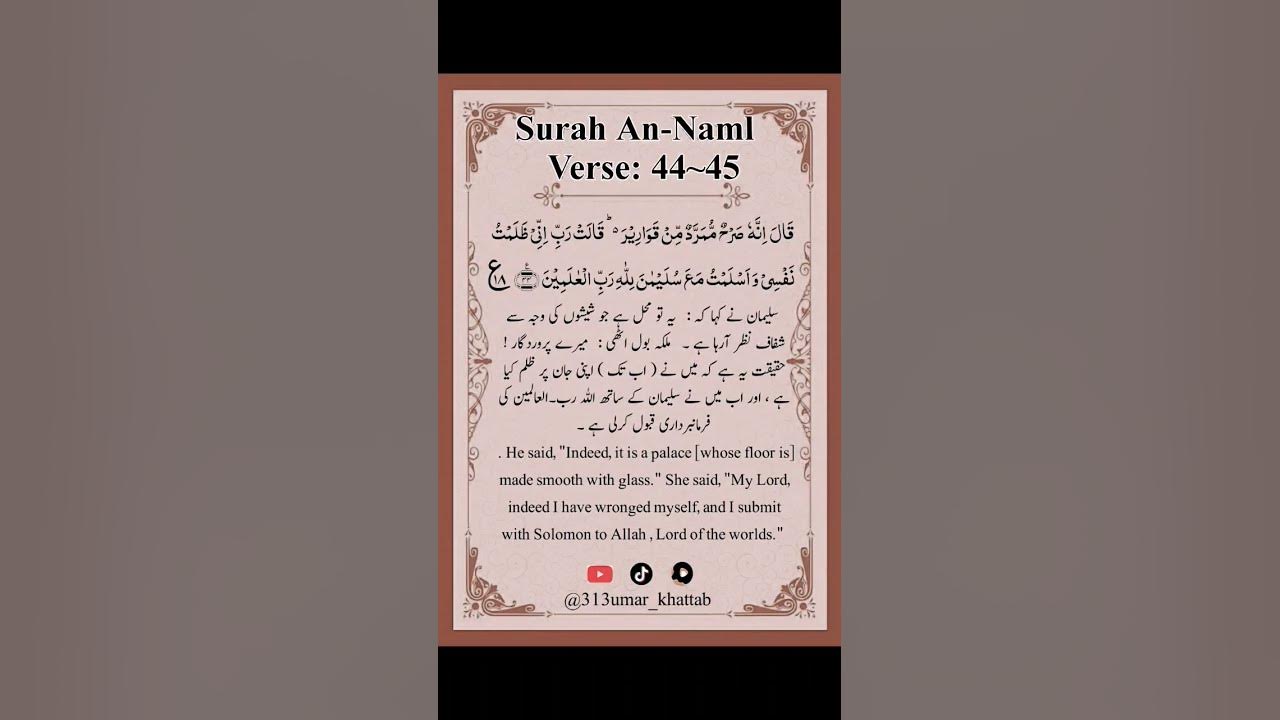 Surah An-Naml
Verse: 44~45
قَالَ اِنَّهٗ صَرْحٌ مُّمَرَّدٌ مِّنْ قَوَارِيْرَ ۬ؕ قَالَتْ رَبِّ اِنِّيْ ظَلَمْتُ
نَفْسِيْ وَ اَسْلَمْتُ مَعَ سُلَيْمٰنَ لِلّٰهِ رَبِّ الْعٰلَمِيْنَ ﴿۴۴﴾ ع ۱۸
سلیمان نے کہا کہ : یہ تو محل ہے جو شیشوں کی وجہ سے
شفاف نظر آرہا ہے ۔ ملکہ بول اٹھی : میرے پروردگار !
حقیقت یہ ہے کہ میں نے ( اب تک ) اپنی جان پر ظلم کیا
ہے ، اور اب میں نے سلیمان کے ساتھ اللہ رب۔العالمین کی
فرمانبرداری قبول کرلی ہے ۔
. He said, "Indeed, it is a palace [whose floor is]
made smooth with glass." She said, "My Lord,
indeed I have wronged myself, and I submit
with Solomon to Allah , Lord of the worlds."
@313umar_khattab